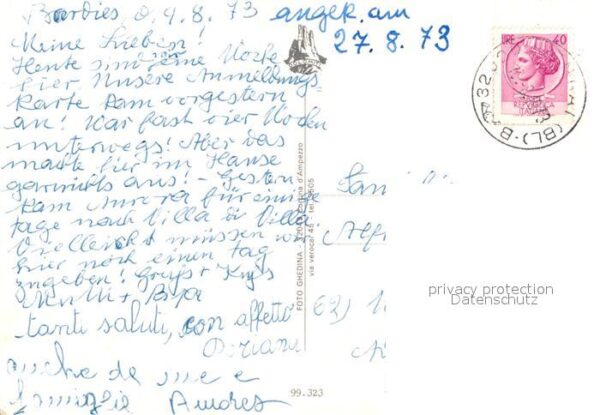 Bordies d. 9.8.73 angek. am
27.8.73
Meine Lieben!
Heute sind eine Woche
hier
Unsere Anmeldungs-
karte kam vorgestern
an! War fast vier Wochen
unterwegs! Aber das
machte hier im Hause
garnichts aus! - Gestern
kam Aurora für einige
tage nach Villa di Villa
Vielleicht müssen wir
hier noch einen Tag
zugeben! Gruß + Kuß
Mutti +
tanti saluti, con affetto
Doriana
anche da me e
famiglia Andres
Fam
Alf
LIRE 40
(BL)
FOTO GHEDINA - Cortina d'Ampezzo
via verocai 45 - tel.
99.323
privacy protection
Datenschutz